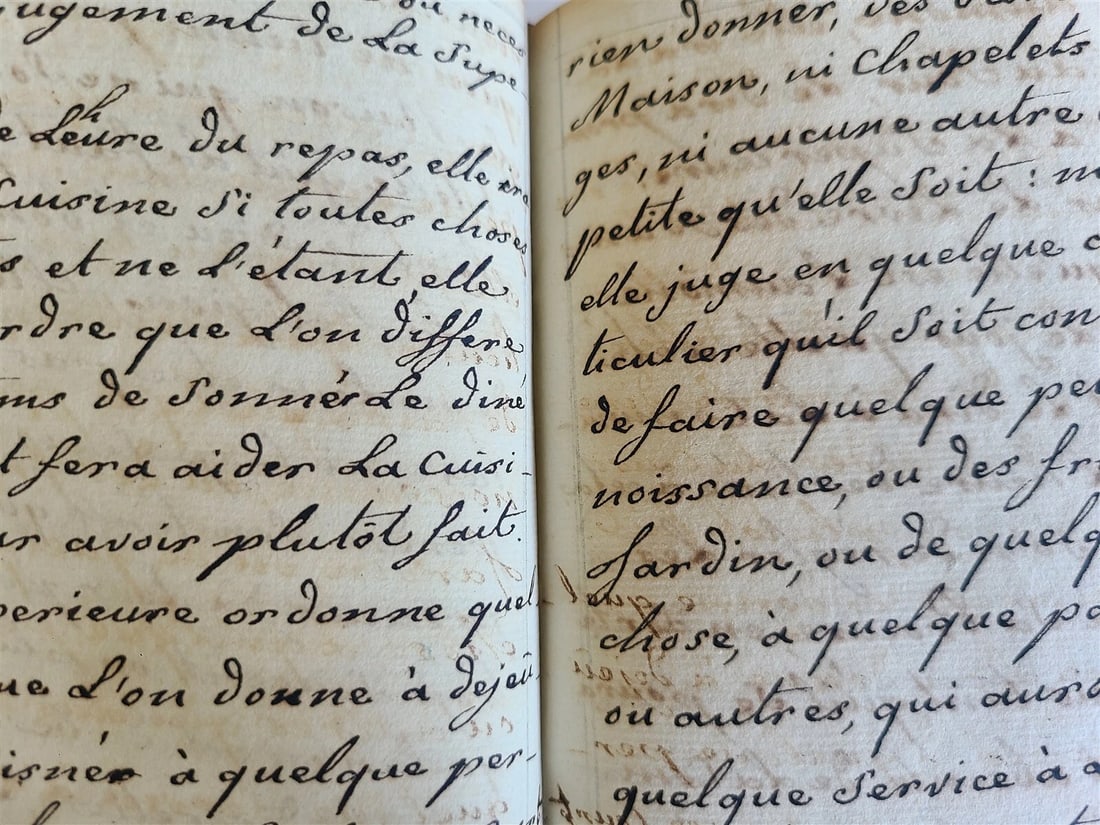 ou neces
ugement de La Supe
e Lehure du repas, elle ira
Cuisine Si toutes choses
s et ne L'étant, elle
rdre que L'on differe
ms de Sonnér Le diné
t fera aider La Cuisi-
ur avoir plutôt fait.
perieure ordonne quel-
ue L'on donne à dejeû
isnér à quelque per-
rien donner, des
Maison, ni Chapelets
ges, ni aucune autre
petite qu'elle Soit : m
elle juge en quelque c
ticulier qu'il Soit con
de faire quelque pe
noissance, ou des fr
Jardin, ou de quelq
chose, à quelque p
ou autres, qui auro
quelque Service à